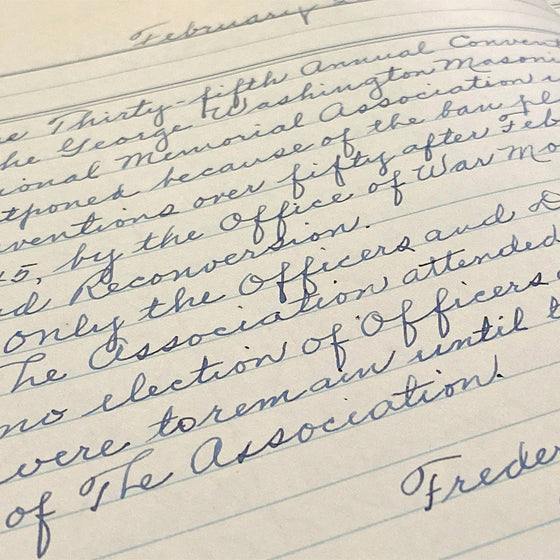 February 2
e Thirty-fifth Annual Convent
he George Washington Masoni
ional Memorial Association
tponed because of the ban pl
ventions over fifty after Feb
45, by the Office of War Mo
d Reconversion.
only the Officers and D
The Association attended
no election of Officers
were to remain until t
of The Association.
Freder